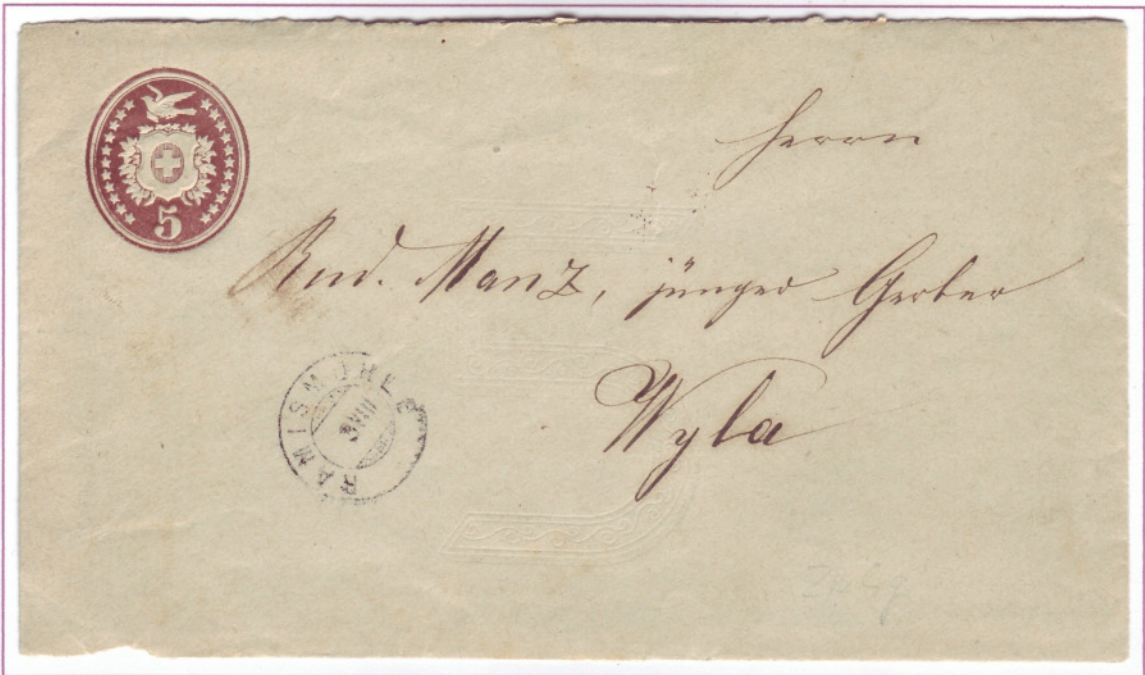 5
Herrn
Rud. Manz, jünger Gerber
Wyla
RAMISMÜHLE